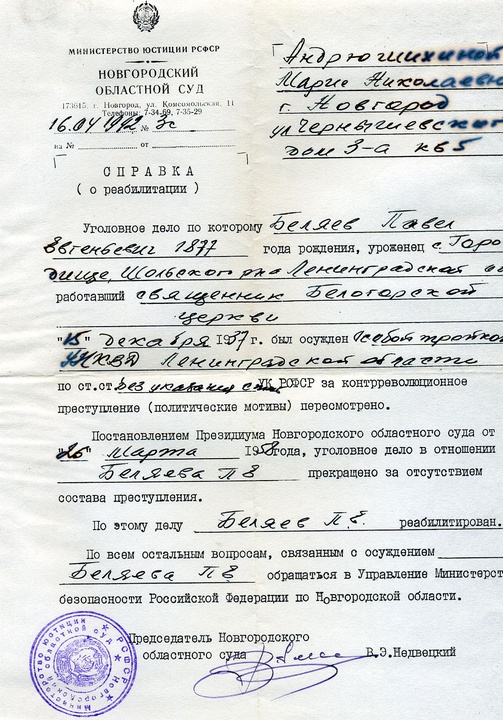 МИНИСТЕРСТВО ЮСТИЦИИ РСФСР
НОВГОРОДСКИЙ
ОБЛАСТНОЙ СУД
173615, г. Новгород, ул. Комсомольская, 11
Телефоны: 7-34-69, 7-35-29
16.04 1992 № 3с
на № от
Андрюшихиной
Марие Николаевне
г. Новгород
ул Чернышевского
дом 3-а кв 5
СПРАВКА
( о реабилитации )
Уголовное дело по которому Беляев Павел
Евгеньевич 1877 года рождения, уроженец с. Горо
дище, Шольского р-на Ленинградской
работавший священник Белогорской
церкви
"15" декабря 1937 г. был осужден Особой тройкой
НКВД Ленинградской области
по ст.ст. без указания УК РСФСР за контрреволюционное
преступление (политические мотивы) пересмотрено.
Постановлением Президиума Новгородского областного суда от
"26" марта 1958 года, уголовное дело в отношении
Беляева П Е прекращено за отсутствием
состава преступления.
По этому делу Беляев П.Е. реабилитирован.
По всем остальным вопросам, связанным с осуждением
Беляева П Е обращаться в Управление Министерст
безопасности Российской Федерации по Новгородской области.
Председатель Новгородского
областного суда В.Э.Недвецкий